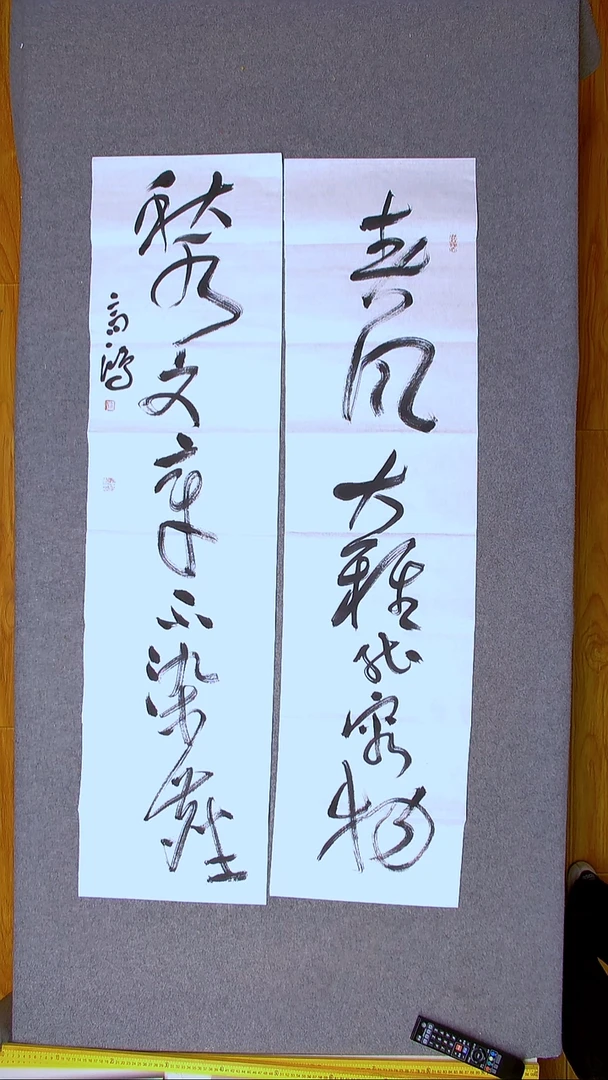 春风大雅能容物
秋水文章不染尘
高鸿